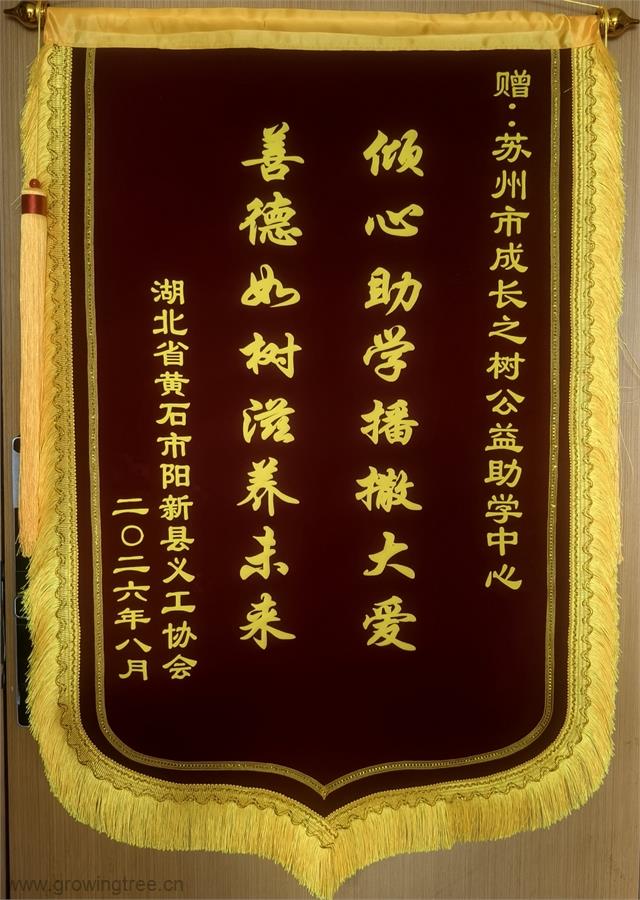 赠：苏州市成长之树公益助学中心
倾心助学播撒大爱
善德如树滋养未来
湖北省黄石市阳新县义工协会
二〇二六年八月
www.growingtree.cn